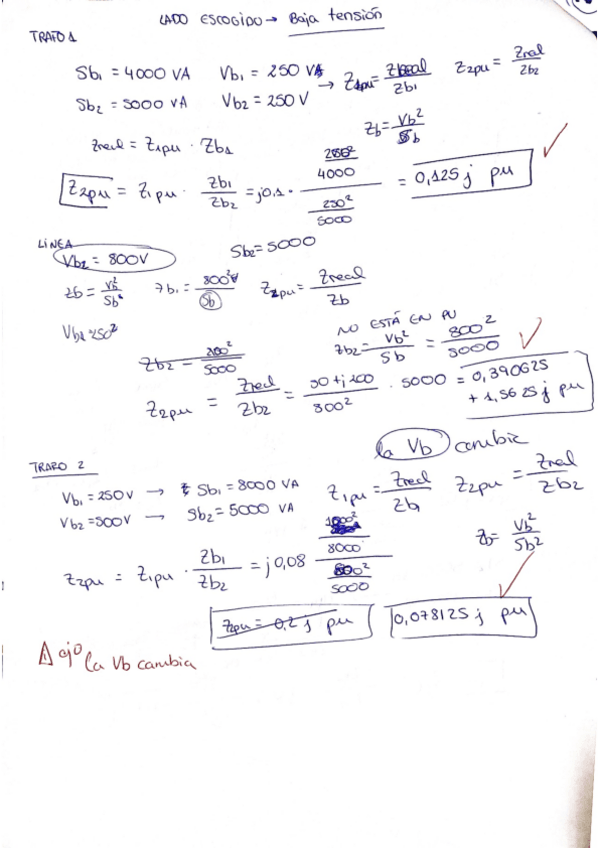 LADO ESCOGIDO → Baja tensión
TRAFO 1
Sb1 = 4000 VA Vb1 = 250 V → Z1pu = Zreal/Zb1 Z2pu = Zreal/Zb2
Sb2 = 5000 VA Vb2 = 250 V
Zb = Vb²/Sb
Zreal = Z1pu · Zb1
Z2pu = Z1pu · Zb1/Zb2 = j0,1 · (250²/4000)/(250²/5000) = 0,125 j pu
LíNEA
Vb2 = 800V Sb2 = 5000
Zb = Vb²/Sb Zb1 = 800²/Sb Z2pu = Zreal/Zb
NO ESTÁ EN PU
Zb2 = Vb²/Sb = 800²/5000
5000
Z2pu = Zreal/Zb2 = 50+j200/800² · 5000 = 0,390625 + 1,5625 j pu
la Vb cambia
TRAFO 2
Vb1 = 250V → Sb1 = 8000 VA Z1pu = Zreal/Zb1 Z2pu = Zreal/Zb2
Vb2 = 500V → Sb2 = 5000 VA
Zb = Vb²/Sb2
Z2pu = Z1pu · Zb1/Zb2 = j0,08 (1000²/8000)/(800²/5000)
Z2pu = 0,2 j pu 0,078125 j pu
⚠ ojo la Vb cambia